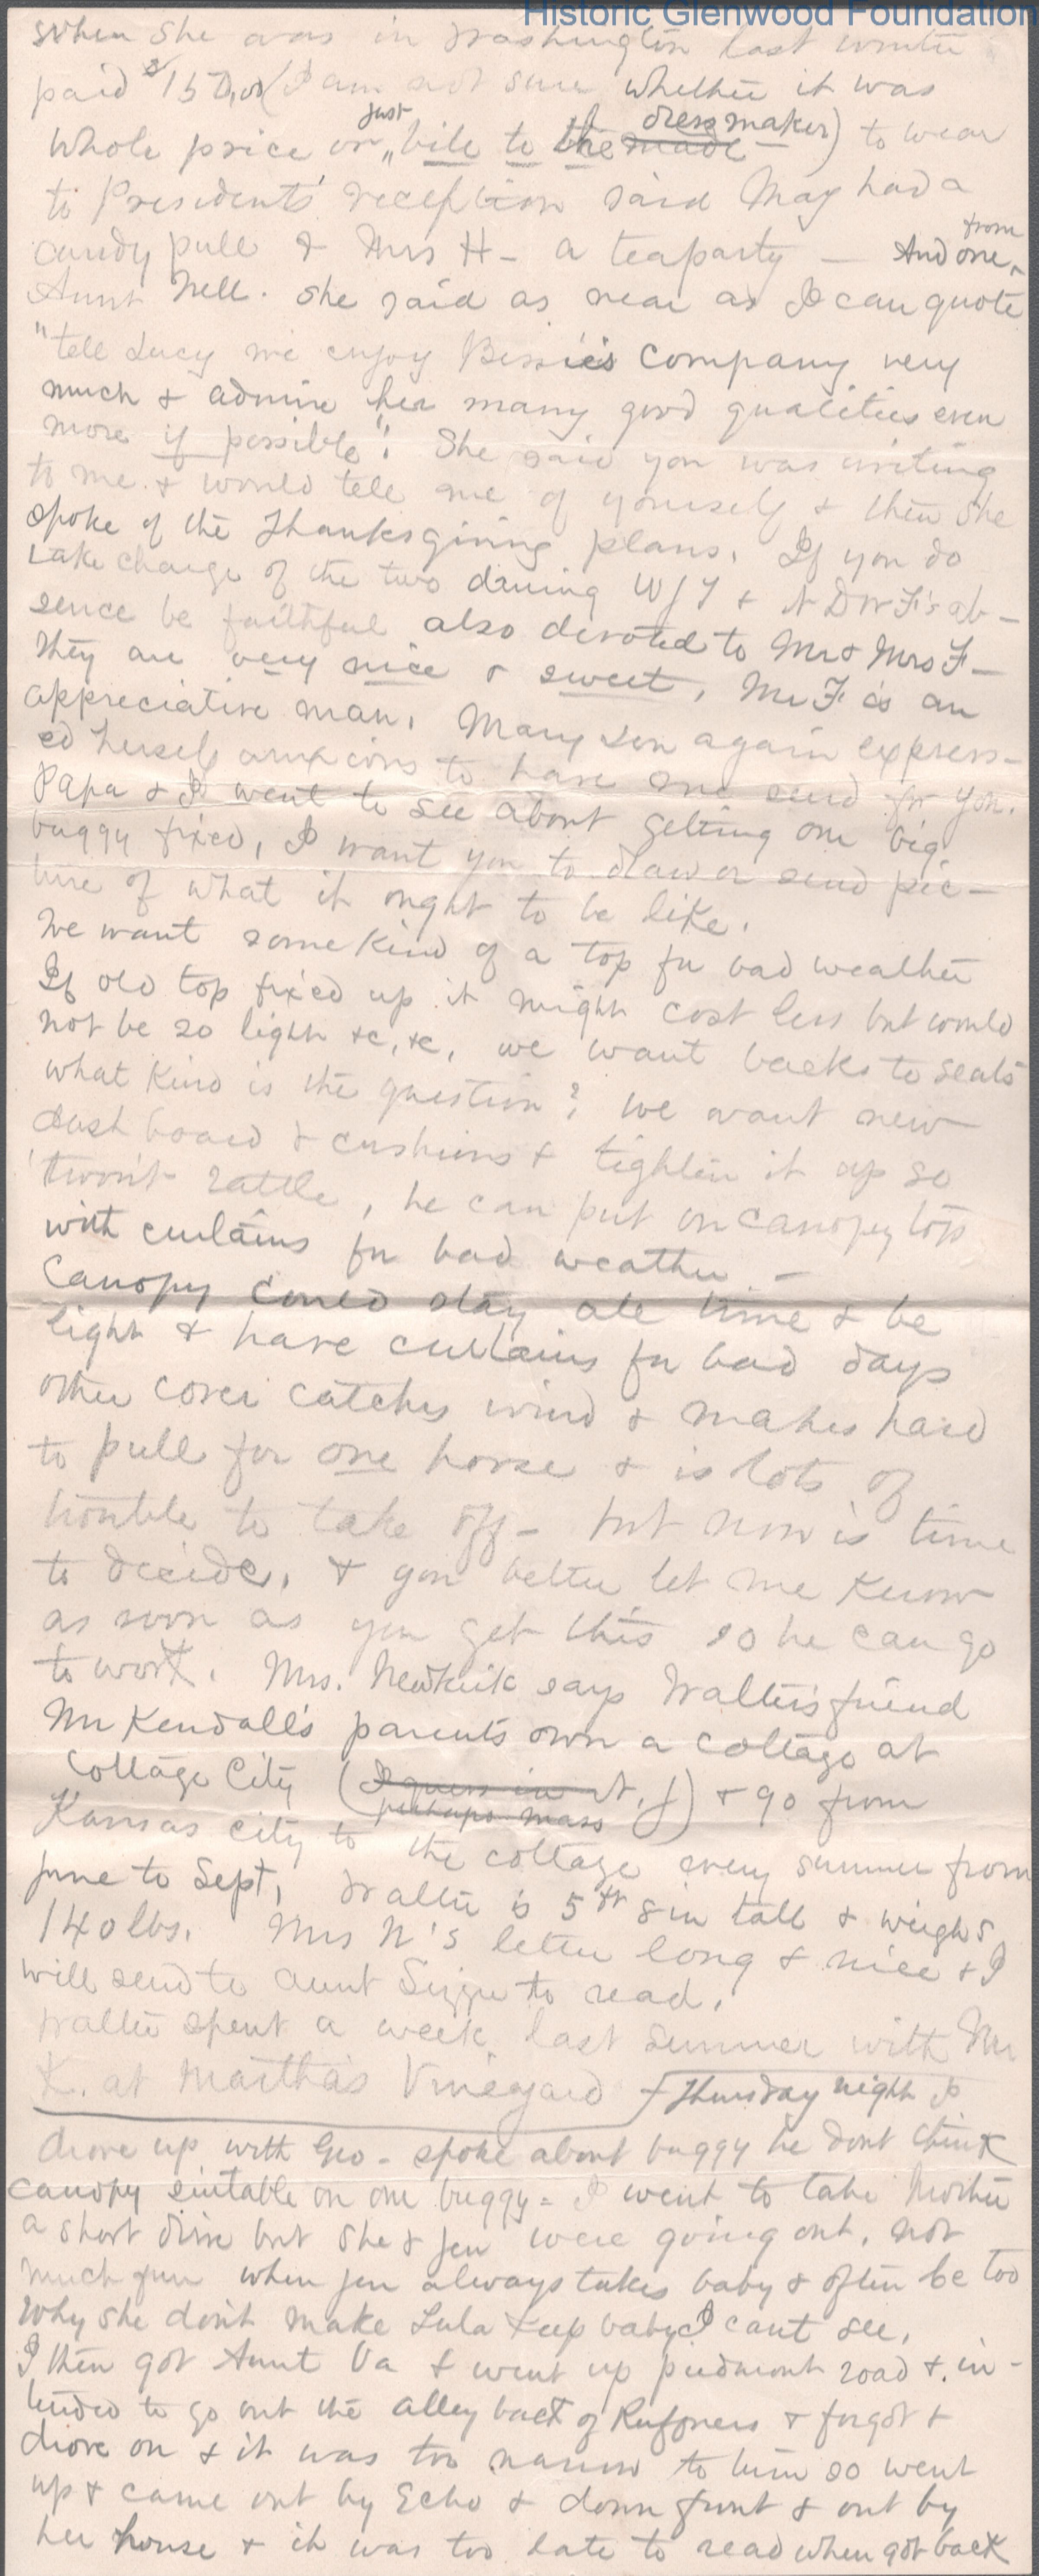 Historic Glenwood Foundation
When she was in Washington last winter
paid $150.00 (I am not sure whether it was
whole price or just bile to the made dressmaker) to wear
to Presidents' reception said May had a
candy pull & Mrs H- a teaparty — And one from
Aunt Nell. She said as near as I can quote
"tell Lucy we enjoy Bessie's company very
much & admire her many good qualities even
more if possible". She said you was writing
to me & would tell me of yourself & then she
spoke of the Thanksgiving plans. If you do
take charge of the two during W J F & N D W F's ab-
sence be faithful also devoted to Mr & Mrs F-
They are very nice & sweet, Mr F is an
appreciative man. Mary Len again express-
ed herself anxious to have me send for you.
Papa & I went to see about getting our big
buggy fixed, I want you to draw or send pic-
ture of what it ought to be like.
We want some kind of a top for bad weather
If old top fixed up it might cost less but would
not be so light &c, &c, we want backs to seats
what kind is the question? we want new
dash board & cushions & tighten it up so
'twon't rattle, he can put on canopy top
with curtains for bad weather -
Canopy could stay all time & be
light & have curtains for bad days
other cover catches wind & makes hard
to pull for one horse & is lots of
trouble to take off - but now is time
to decide, & you better let me know
as soon as you get this so he can go
to work. Mrs. Newkirk says Walter's friend
Mr Kendall's parents own a cottage at
Cottage City (I guess in N. J) perhaps mass & go from
Kansas City to the cottage every summer from
June to Sept, Walter is 5 ft 8 in tall & weighs
140 lbs. Mrs N's letter long & nice & I
will send to aunt Lizzie to read.
Walter spent a week last summer with Mr
K. at Martha's Vineyard - Thursday night I
drove up with Geo - spoke about buggy he dont think
canopy suitable on our buggy = I went to take Mother
a short drive but she & Jen were going out, not
much fun when Jen always takes baby & often be too
Why she don't make Lula keep baby I cant see.
I then got Aunt Va & went up piedmont road & in-
tended to go out the alley back of Ruffners & forgot &
drove on & it was too narrow to turn so went
up & came out by Echo & down front & out by
her house & it was too late to read when got back